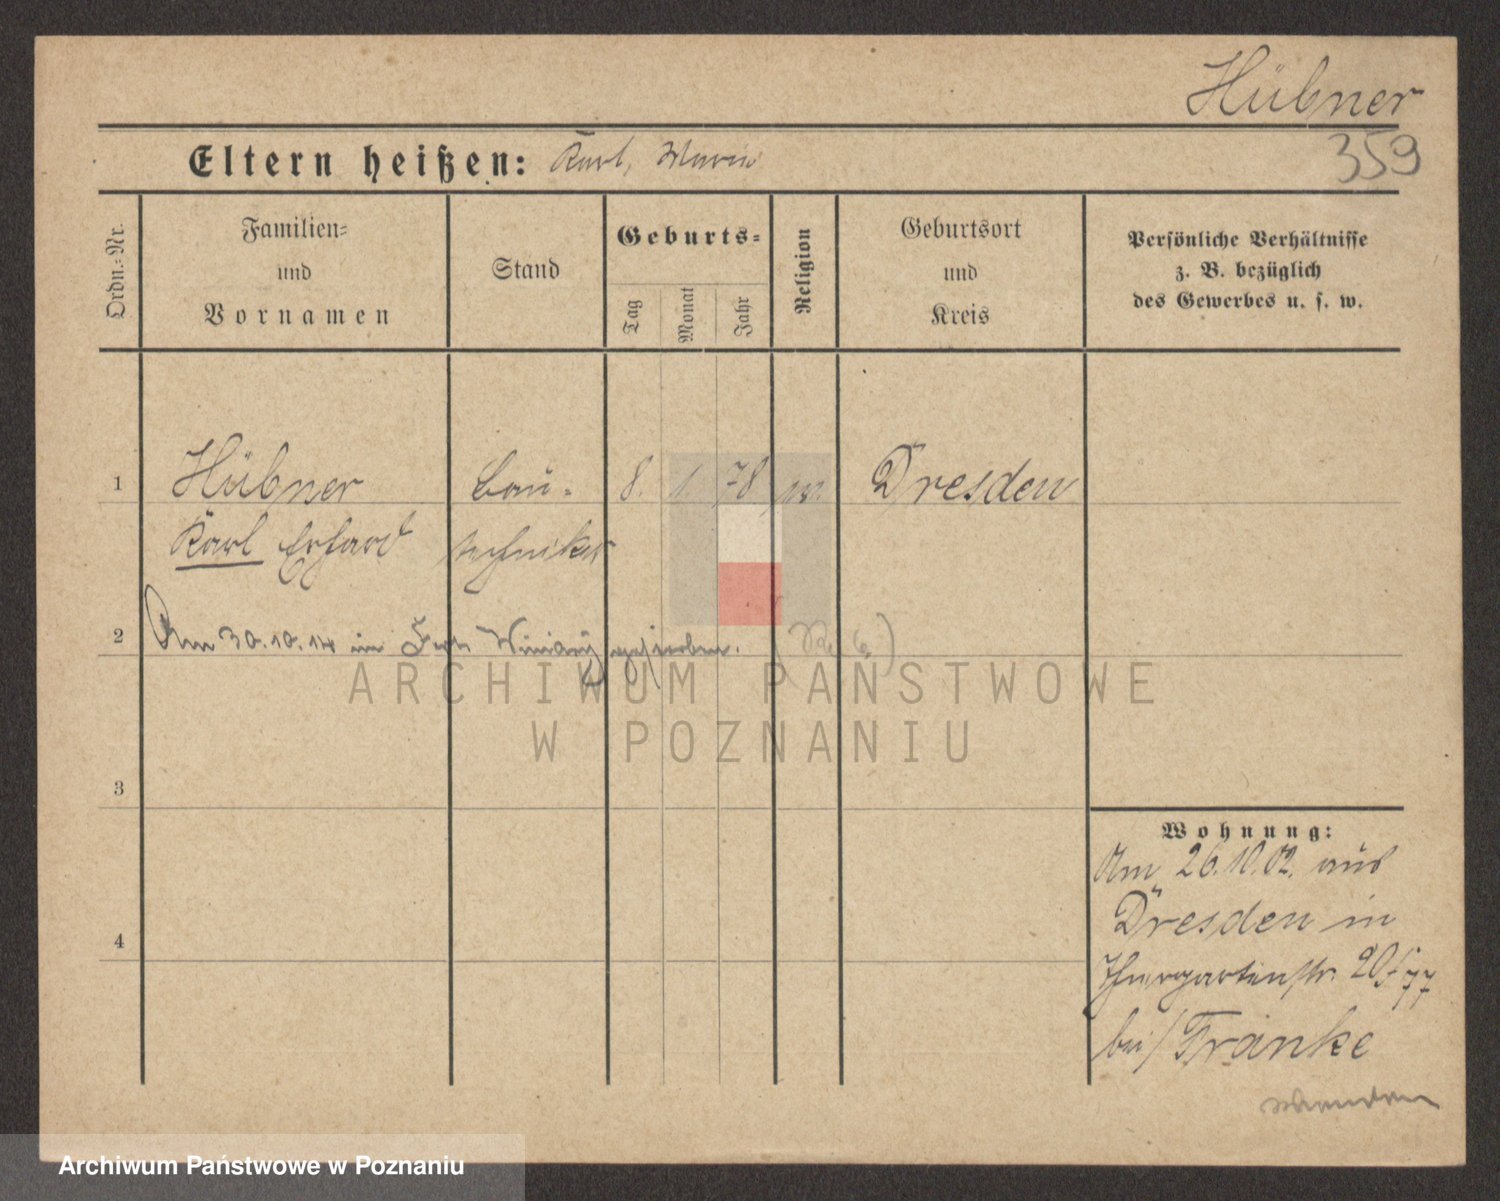 Hübner
359
Eltern heißen: Karl, Marie
Ordn.-Nr.
Familien-
und
Vornamen
Stand
Geburts-
Tag
Monat
Jahr
Religion
Geburtsort
und
Kreis
Persönliche Verhältnisse
z. B. bezüglich
des Gewerbes u. s. w.
1
Hübner
Bau-
8. 1. 78
Dresden
Karl Erhard
techniker
2
Am 30.10.14 im Fort Winiary gestorben.
ARCHIWUM PAŃSTWOWE
W POZNANIU
3
4
Wohnung:
Am 26.10.02. aus
Dresden in
Thiergartenstr. 20
bei Franke
wenden
Archiwum Państwowe w Poznaniu